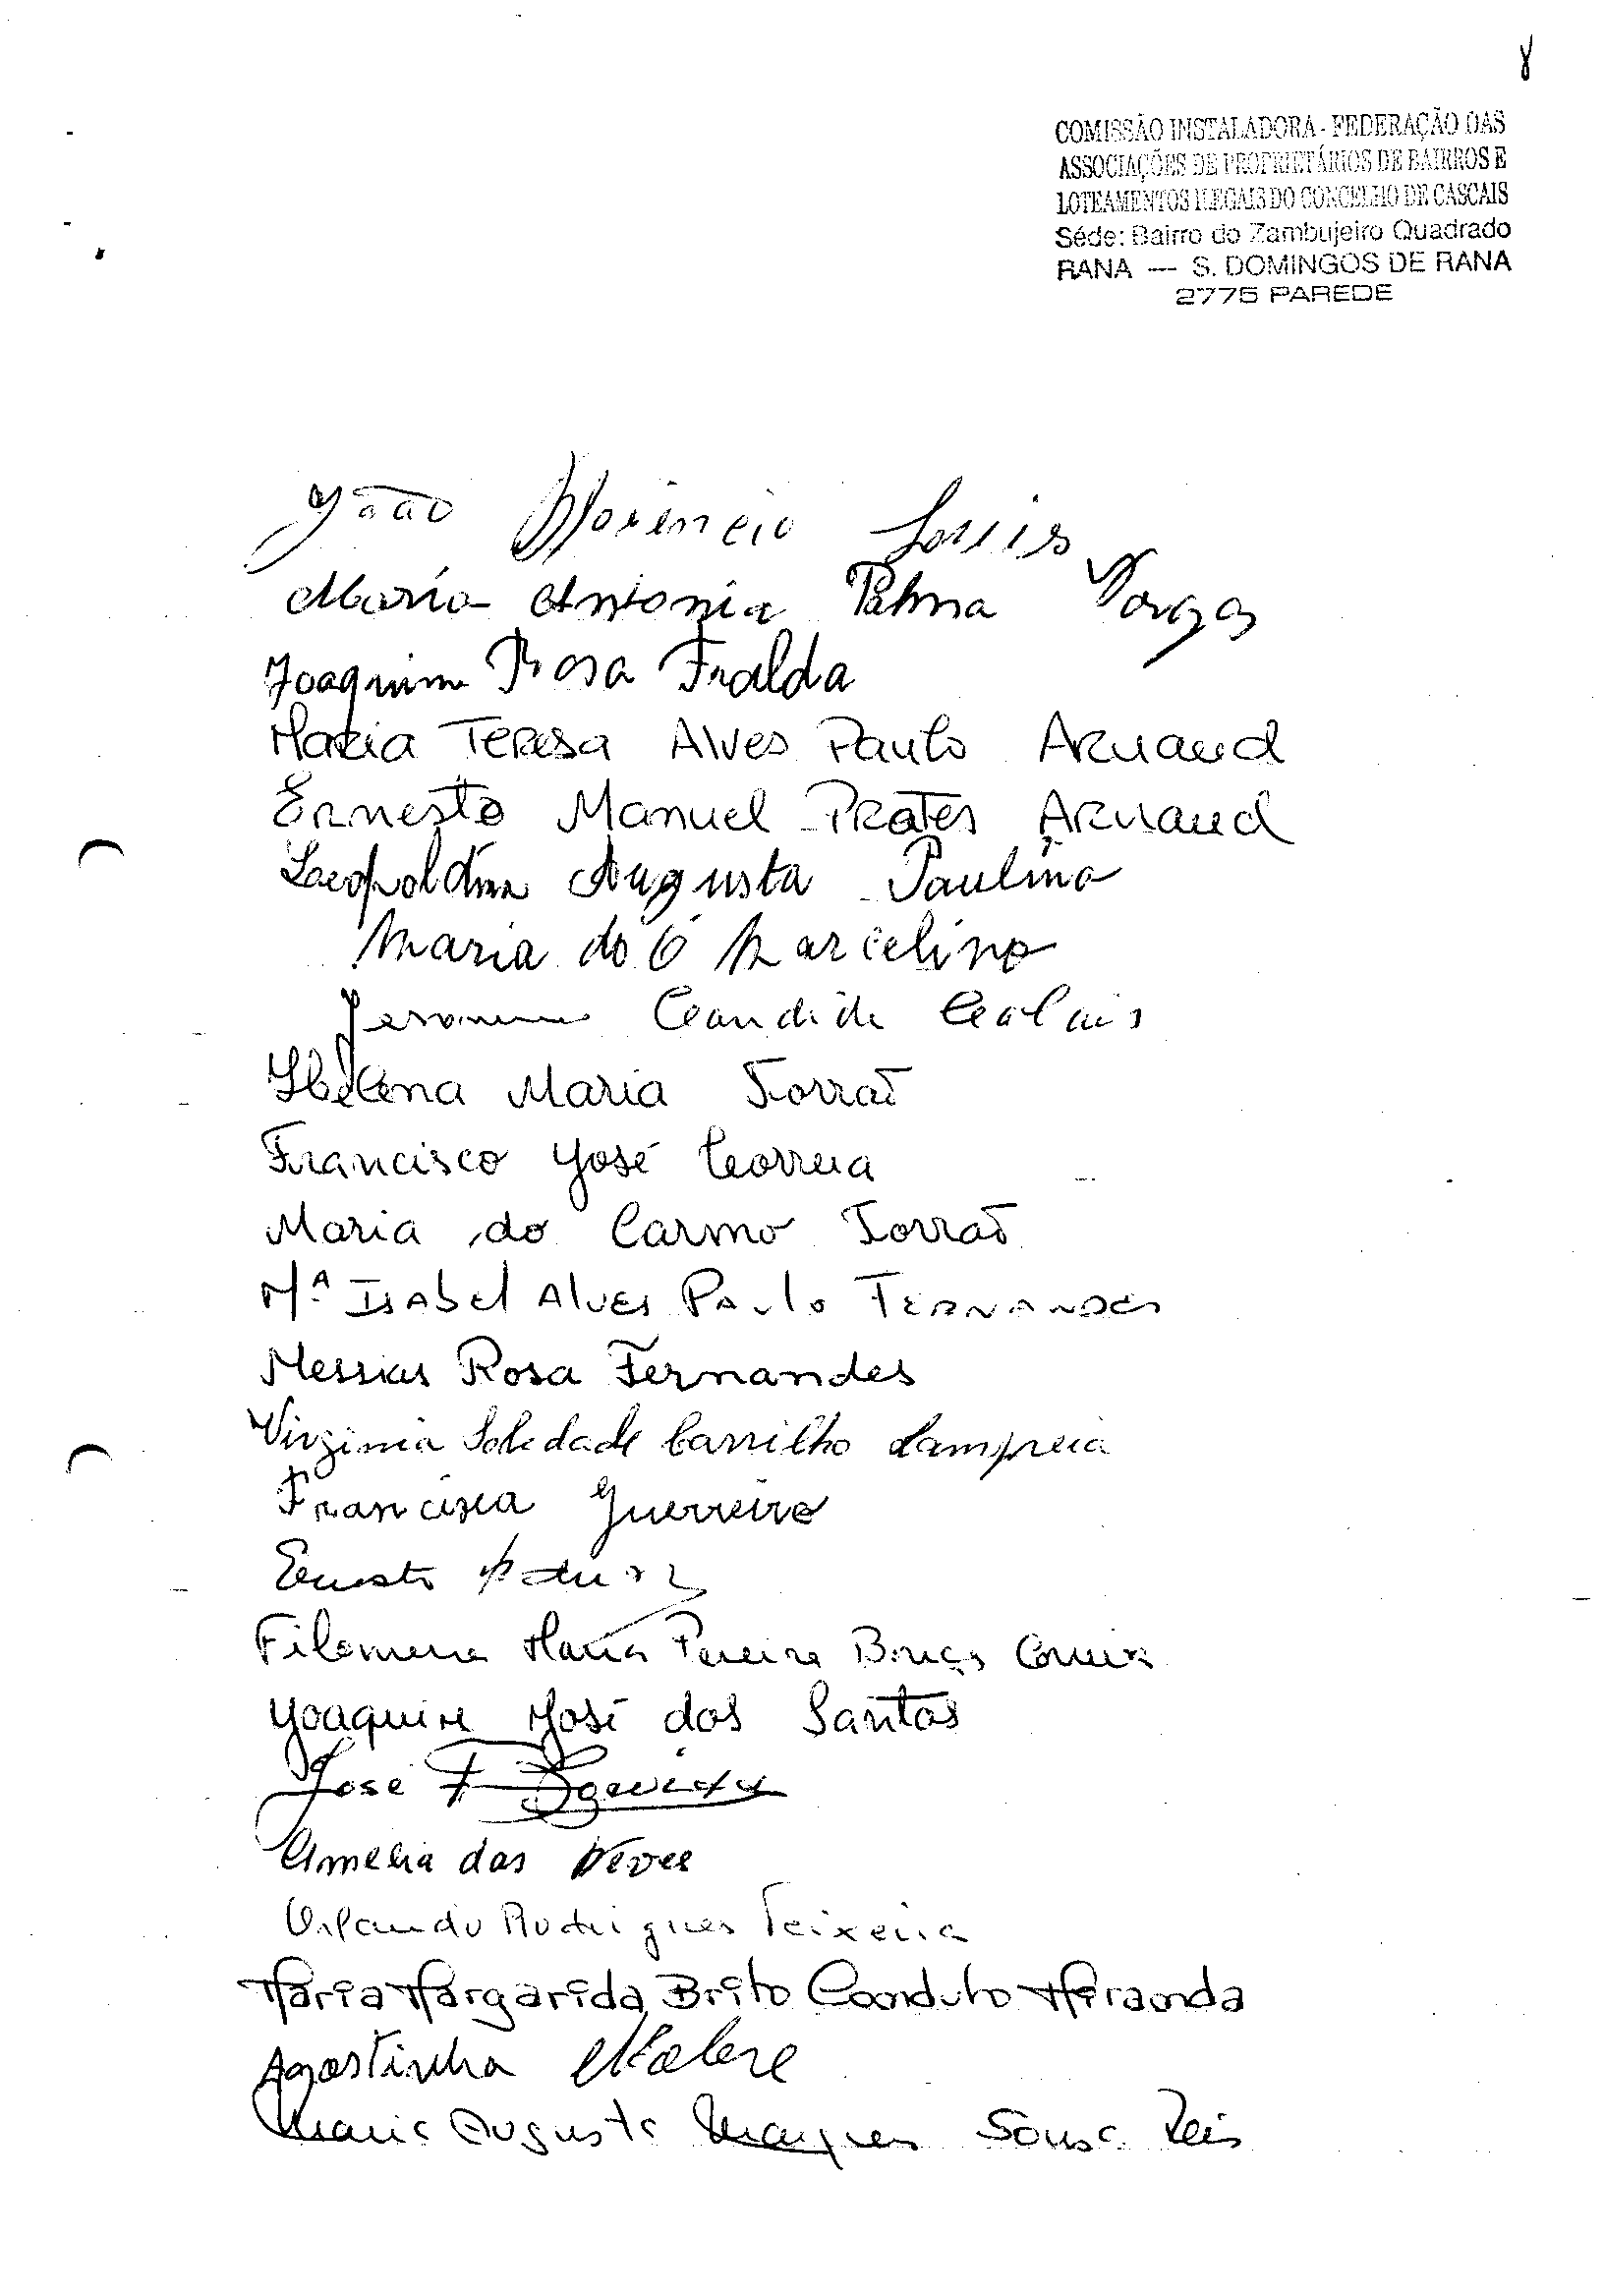 8
COMISSÃO INSTALADORA - FEDERAÇÃO DAS
ASSOCIAÇÕES DE PROPRIETÁRIOS DE BAIRROS E
LOTEAMENTOS ILEGAIS DO CONCELHO DE CASCAIS
Séde: Bairro do Zambujeiro Quadrado
RANA — S. DOMINGOS DE RANA
2775 PAREDE
João Florencio Louis
Maria Antonia Palma Vargas
Joaquim Rosa Fralda
Maria Teresa Alves Paulo Arnaud
Ernesto Manuel Prates Arnaud
Leopoldina Augusta Paulino
Maria do Ó Marcelino
Candida
Helena Maria Torrão
Francisco José Correia
Maria do Carmo Torrão
Mª Isabel Alves Paulo Fernandes
Messias Rosa Fernandes
Virginia Soledade Carrilho Lampreia
Francisca Guerreiro
Ernesto
Filomena Maria Pereira Correia
Joaquim José dos Santos
José F.
Amelia das Neves
Orlando Rodrigues Teixeira
Maria Margarida Brito Conduto Miranda
Agostinha
Maria Augusta Marques Sousa Reis